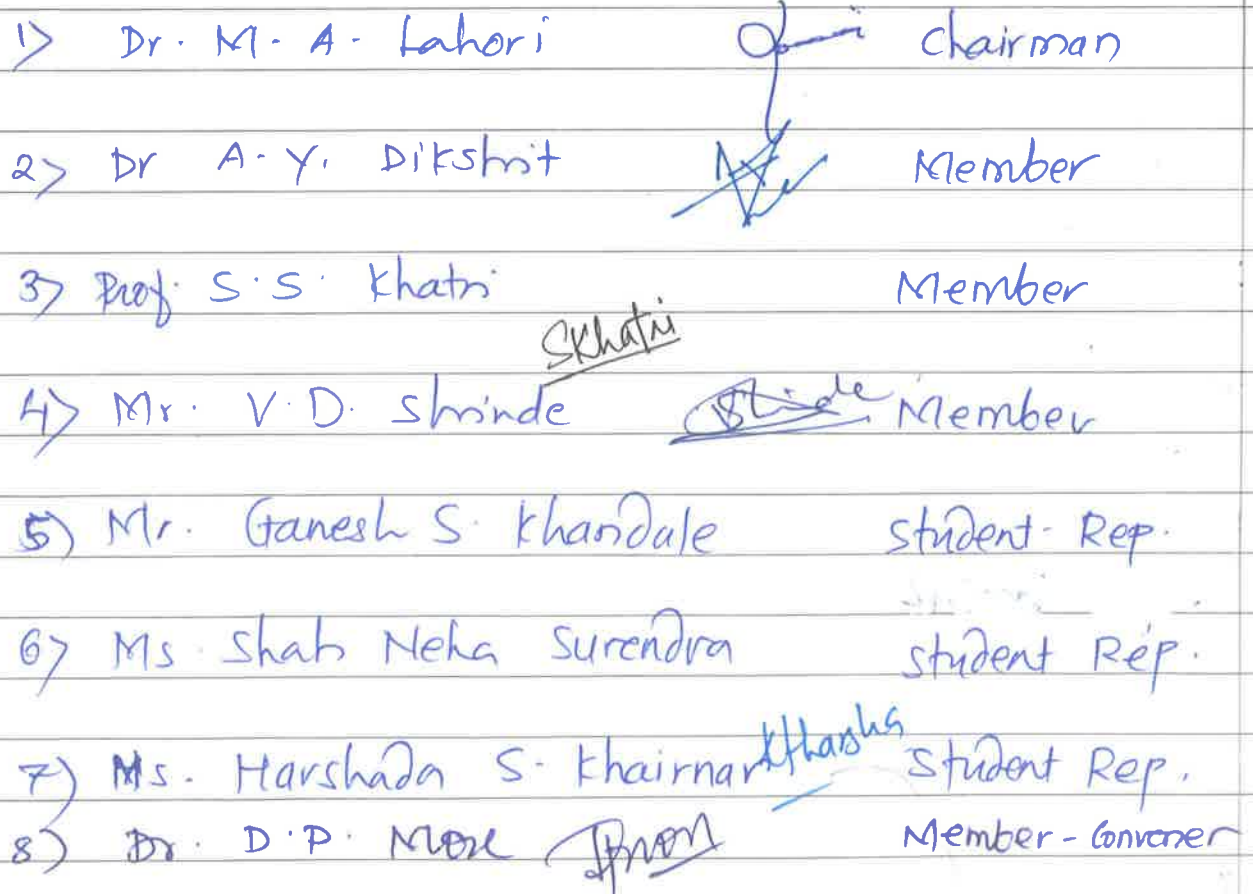 1) Dr. M. A. Lahori Chairman
2) Dr A. Y. Dikshit Member
3) Prof. S.S. Khatri Member
SKhatri
4) Mr. V.D. Shinde Member
5) Mr. Ganesh S. Khandale Student Rep.
6) Ms. Shah Neha Surendra Student Rep.
7) Ms. Harshada S. Khairnar Student Rep.
8) Dr. D.P. More Member-Convener